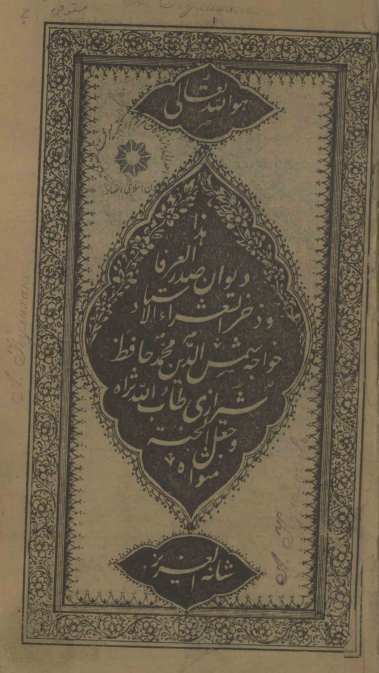 هو الله تعالی
هذا
دیوان صدر العرفا
و ذخر الشعراء الاستاد
خواجه شمس الدین محمد حافظ
شیرازی طاب الله ثراه
و جعل الجنة
مثواه
شانه العزیز